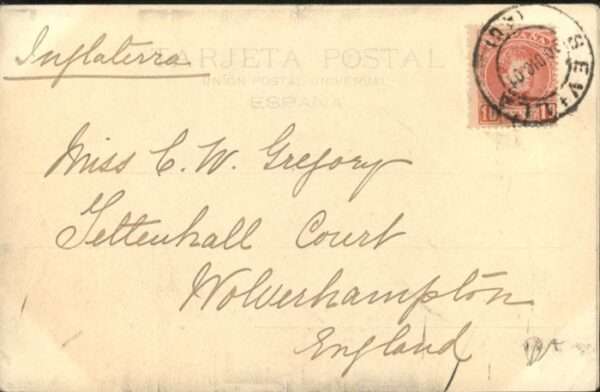 Inglaterra
TARJETA POSTAL
UNIÓN POSTAL UNIVERSAL
ESPAÑA
SEVILLA
10 10
Miss C. W. Gregory
Tettenhall Court
Wolverhampton
England